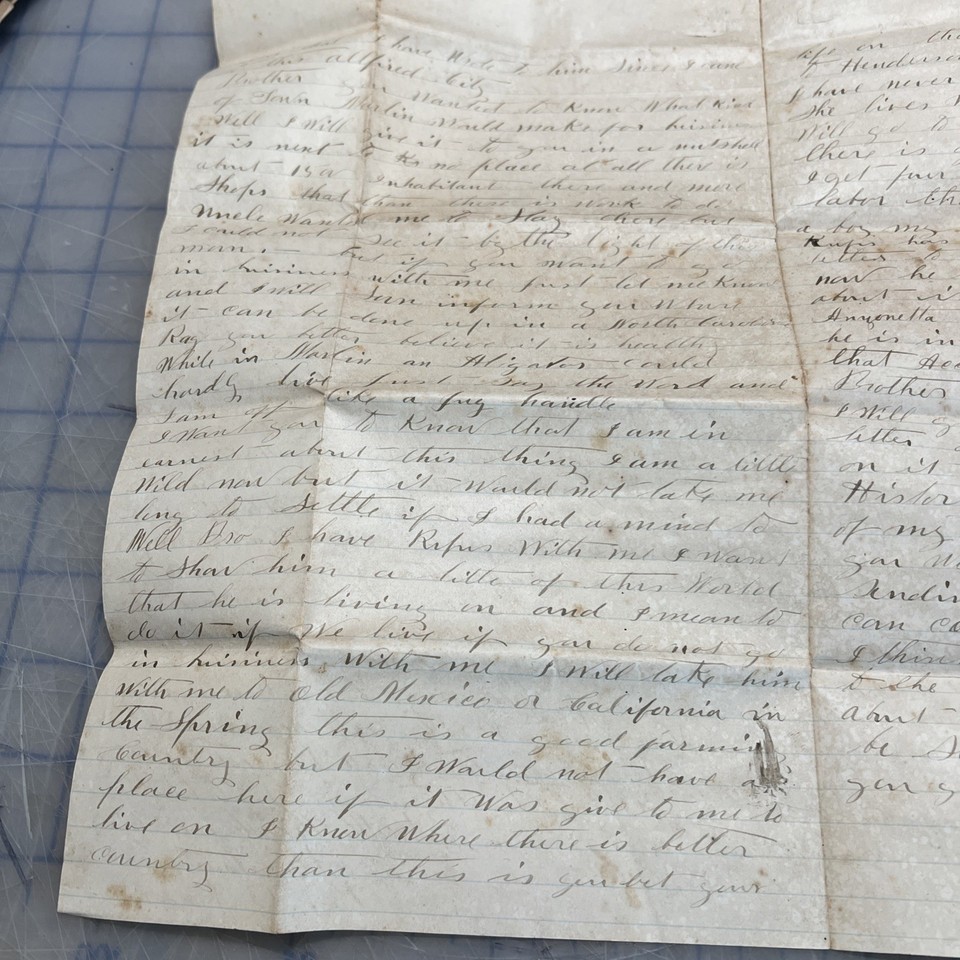 I have Wrote to him Since I came
this allfired City
Brother you Wanted to Know What Kind
of Town Marlin Would make for buisiness
Well I Will give it to you in a nutshell
it is next to no place at all there is
about 150 Inhabitant there and more
Shops that than there is Work to do
Uncle Wanted me to Stay there but
I could not See it by the light of the
moon. — But if you Want to go
in buisiness with me just let me Know
and I Will Soon inform you Where
it can be done up in a North Carolina
Rag you better believe it is healthy
While in Marlin an Aligator could
hardly live just Say the Word and
I am off like a jug handle
I Want you to Know that I am in
earnest about this thing I am a little
Wild now but it Would not take me
long to Settle if I had a mind to
Well Bro I have Rufus With me I Want
to Show him a litte of this World
that he is living on and I mean to
do it if We live if you do not go
in buisiness With me I Will take him
With me to Old Mexico or California in
the Spring this is a good farming
Country but I Would not have a
place here if it Was give to me to
live on I Know Where there is better
country than this is you bet your
life on tha
of Henderso
I have never
She lives
Will go to
there is a
I get four
labor tha
a boy my
Rufus has
letter to
now he
about i
Anyonetta
he is in
that Hea
Brother
I Will g
letter
on it
Histor
of my
you W
Sendin
can co
I thin
to She
about
be S
you g